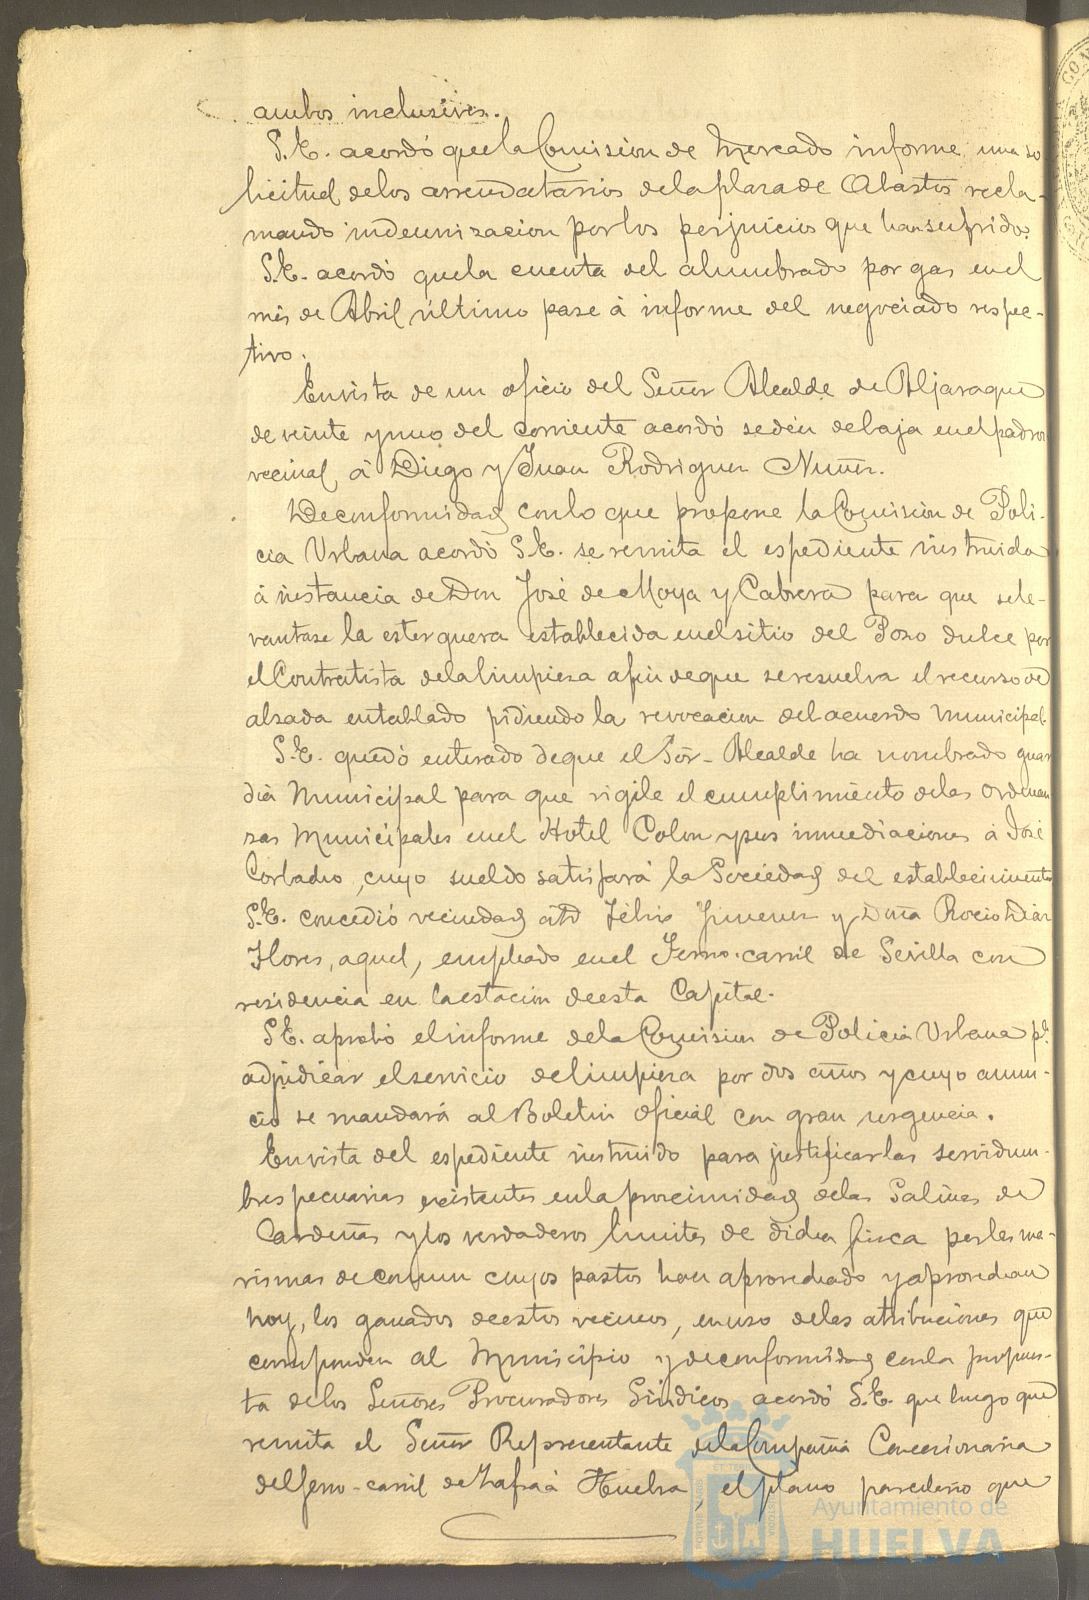 ambos inclusives.
S.E. acordó que la Comision de Mercado informe una so
licitud de los arrendatarios de la plaza de Abastos recla-
mando indemnizacion por los perjuicios que han sufrido.
S.E. acordó que la cuenta del alumbrado por gas en el
mes de Abril último pase á informe del negociado respec-
tivo.
En vista de un oficio del Señor Alcalde de Aljaraque
de veinte y uno del corriente acordó se dén de baja en el padron
vecinal á Diego y Juan Rodriguez Nuñez.
De conformidad con lo que propone la Comision de Poli-
cia Urbana acordó S.E. se remita el espediente instruido
á instancia de Don José de Moya y Cabrera para que se le-
vantase la esterquera establecida en el sitio del Pozo dulce por
el Contratista de la limpieza a fin de que se resuelva el recurso de
alzada entablado pidiendo la revocacion del acuerdo municipal.
S.E. quedó enterado de que el Sor. Alcalde ha nombrado guar
dia Municipal para que vigile el cumplimiento de las ordenan
zas Municipales en el Hotel Colon y sus inmediaciones á José
cuyo sueldo satisfará la Sociedad del establecimiento
S.E. concedió vecindad á D Félix Jimenez y Doña Rocio Diaz
Flores, aquel, empleado en el Ferro-carril de Sevilla con
residencia en la estacion de esta Capital.
S.E. aprobó el informe de la Comision de Policia Urbana pa
adjudicar el servicio de limpieza por dos años y cuyo anun-
cio se mandará al Boletin oficial con gran urgencia.
En vista del espediente instruido para justificar las servidum-
bres pecuarias existentes en la procsimidad de las Salinas de
Cardeñas y los verdaderos limites de dicha finca por las ma-
rismas de comun cuyos pastos han aprovechado y aprovechan
hoy, los ganados de estos vecinos, en uso de las atribuciones que
corresponden al Municipio y de conformidad con la propues-
ta de los Señores Procuradores Sindicos acordó S.E. que luego que
remita el Señor Representante de la Compañia Concesionaria
del ferro-carril de Zafra á Huelva, el plano parcelario que
Ayuntamiento de
HUELVA